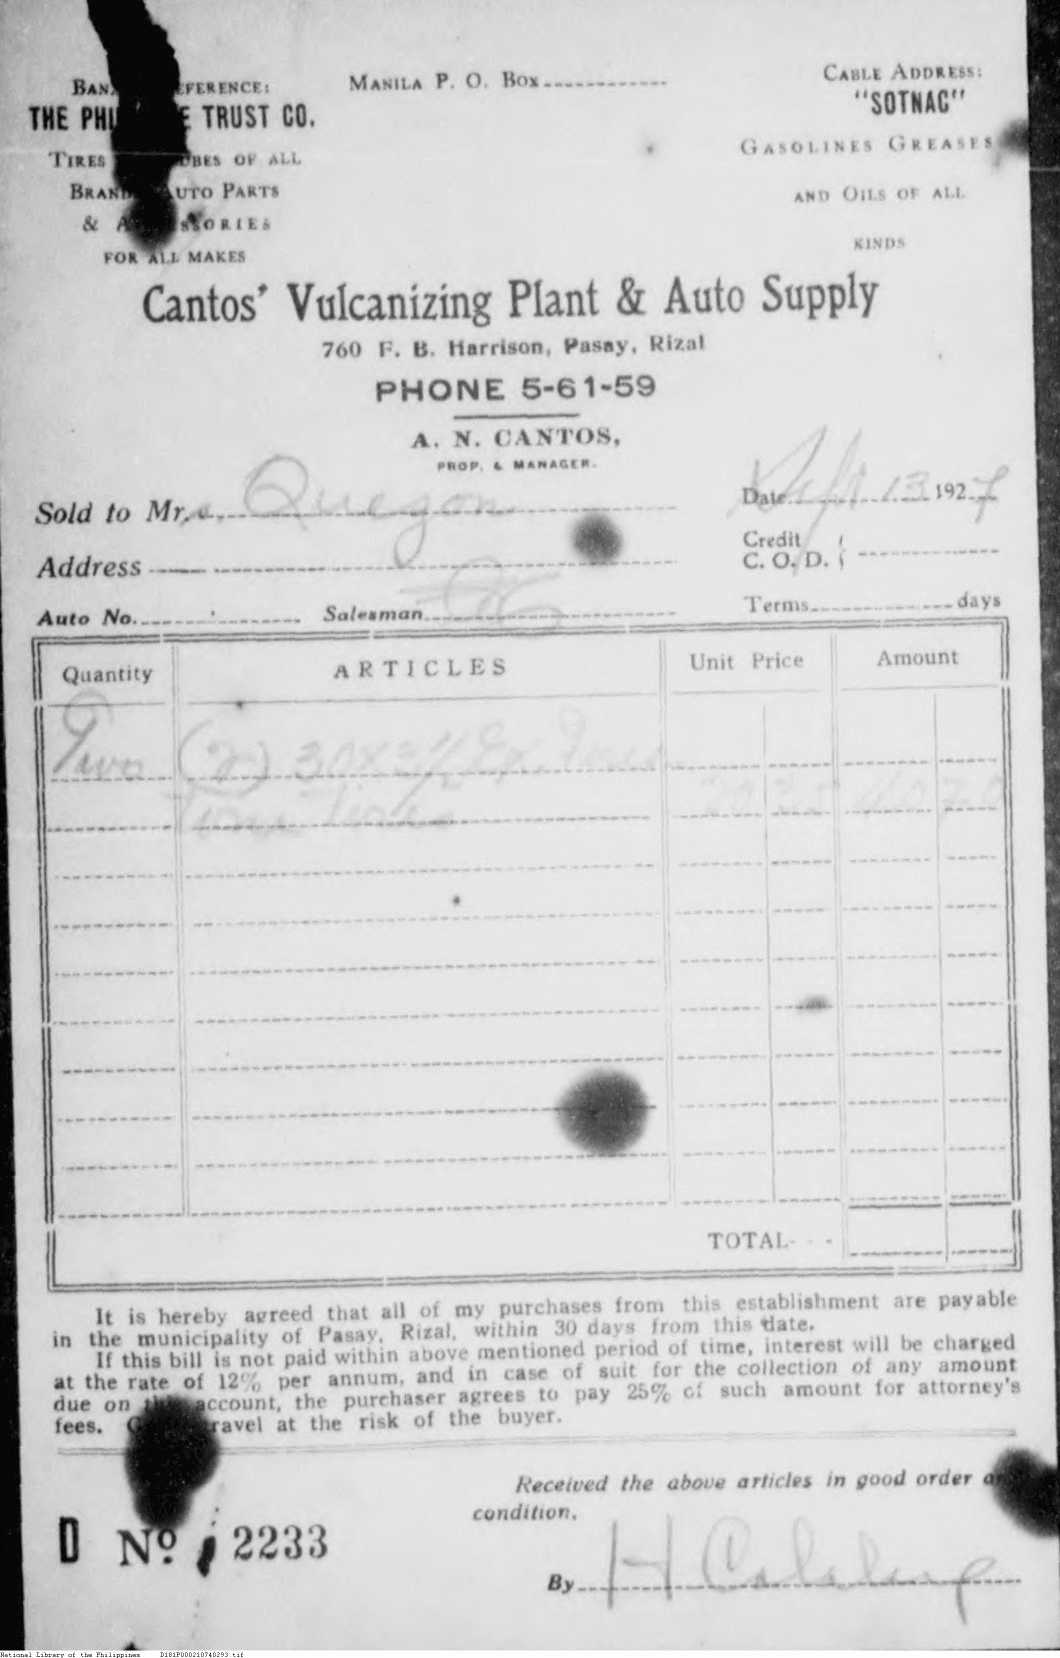 REFERENCE:
THE PHI E TRUST CO.
TIRES OF ALL
AUTO PARTS
&
FOR ALL MAKES
MANILA P. O. BOX
CABLE ADDRESS:
"SOTNAC"
GASOLINES GREASES
AND OILS OF ALL
KINDS
Cantos' Vulcanizing Plant & Auto Supply
760 F. B. Harrison, Pasay, Rizal
PHONE 5-61-59
A. N. CANTOS,
PROP. & MANAGER.
Sold to Mr. Quezon
Date Sept 13 1927
Address
Credit
C. O. D.
Auto No. Salesman
Terms days
Quantity ARTICLES Unit Price Amount
Two (2) 30x3½
20 35 40 70
TOTAL
It is hereby agreed that all of my purchases from this establishment are payable
in the municipality of Pasay, Rizal, within 30 days from this date.
If this bill is not paid within above mentioned period of time, interest will be charged
at the rate of 12% per annum, and in case of suit for the collection of any amount
due on this account, the purchaser agrees to pay 25% of such amount for attorney's
fees. travel at the risk of the buyer.
Received the above articles in good order
condition.
D No. 2233
By H
National Library of the Philippines D181P000210740293.tif